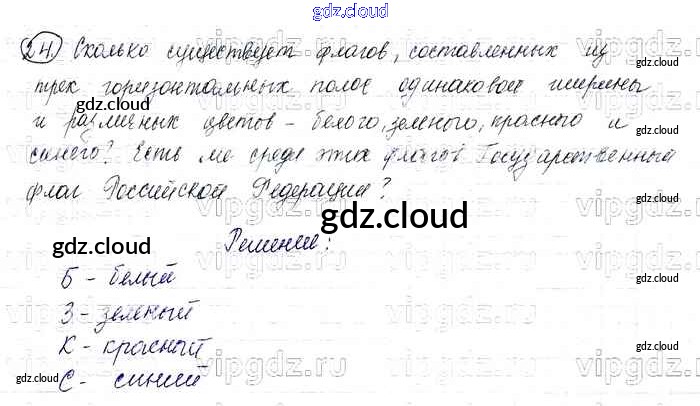 gdz.cloud
24. Сколько существует флагов, составленных из
трех горизонтальных полос одинаковой ширины
gdz.cloud gdz.cloud
и различных цветов - белого, зеленого, красного и
синего? Есть ли среди этих флагов Государственный
флаг Российской Федерации?
gdz.cloud
Решение:
gdz.cloud
Б - белый
gdz.cloud
З - зеленый
К - красный
gdz.cloud
gdz.cloud С - синий gdz.cloud